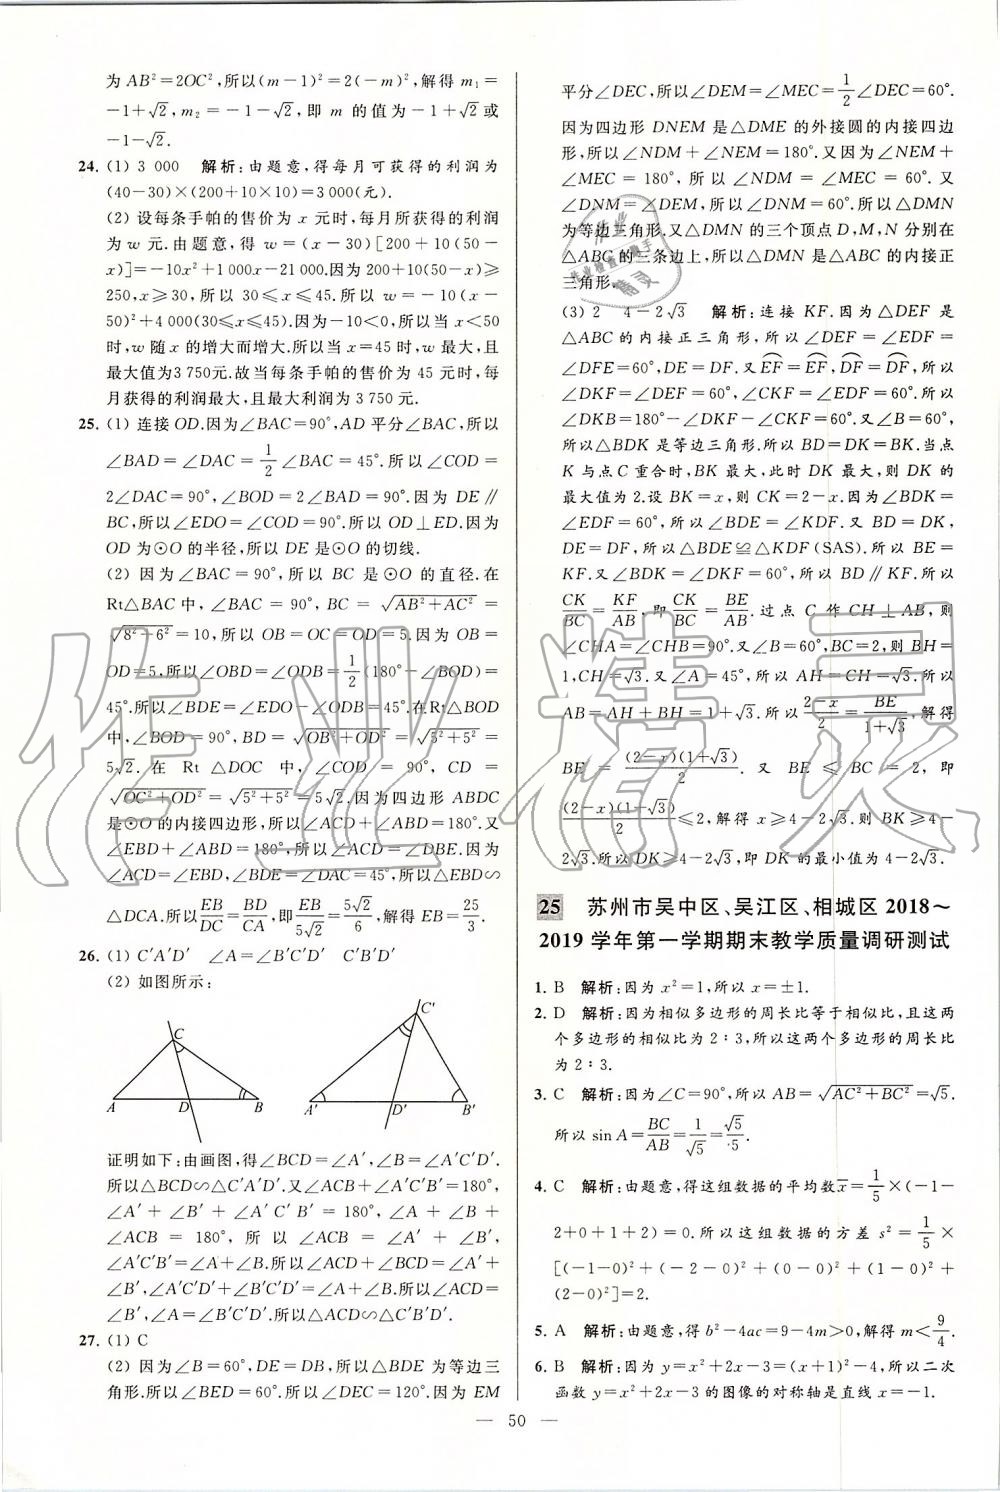 为AB²=2OC²,所以(m-1)²=2(-m)²,解得m₁=
-1+√2,m₂=-1-√2,即m的值为-1+√2或
-1-√2.
24. (1) 3 000 解析:由题意,得每月可获得的利润为
(40-30)×(200+10×10)=3 000(元).
(2) 设每条手帕的售价为x元时,每月所获得的利润
为w元.由题意,得w=(x-30)[200+10(50-
x)]=-10x²+1 000x-21 000.因为200+10(50-x)≥
250,x≥30,所以30≤x≤45.所以w=-10(x-
50)²+4 000(30≤x≤45).因为-10<0,所以当x<50
时,w随x的增大而增大.所以当x=45时,w最大,且
最大值为3 750元.故当每条手帕的售价为45元时,每
月获得的利润最大,且最大利润为3 750元.
25. (1) 连接OD.因为∠BAC=90°,AD平分∠BAC,所以
∠BAD=∠DAC=1/2∠BAC=45°.所以∠COD=
2∠DAC=90°,∠BOD=2∠BAD=90°.因为DE∥
BC,所以∠EDO=∠COD=90°.所以OD⊥ED.因为
OD为⊙O的半径,所以DE是⊙O的切线.
(2) 因为∠BAC=90°,所以BC是⊙O的直径.在
Rt△BAC中,∠BAC=90°,BC=√(AB²+AC²)=
√(8²+6²)=10,所以OB=OC=OD=5.因为OB=
OD=5,所以∠OBD=∠ODB=1/2(180°-∠BOD)=
45°.所以∠BDE=∠EDO-∠ODB=45°.在Rt△BOD
中,∠BOD=90°,BD=√(OB²+OD²)=√(5²+5²)=
5√2.在Rt△DOC中,∠COD=90°,CD=
√(OC²+OD²)=√(5²+5²)=5√2.因为四边形ABDC
是⊙O的内接四边形,所以∠ACD+∠ABD=180°.又
∠EBD+∠ABD=180°,所以∠ACD=∠DBE.因为
∠ACD=∠EBD,∠BDE=∠DAC,所以△EBD∽
△DCA.所以EB/DC=BD/CA,即EB/5√2=5√2/6,解得EB=25/3.
26. (1) C′A′D′ ∠A=∠B′C′D′ C′B′D′
(2) 如图所示:
C
A
D
B
C′
A′
D′
B′
证明如下:由画图,得∠BCD=∠A′,∠B=∠A′C′D′.
所以△BCD∽△C′A′D′.又∠ACB+∠A′C′B′=180°,
∠A′+∠B′+∠A′C′B′=180°,∠A+∠B+
∠ACB=180°,所以∠ACB=∠A′+∠B′,
∠A′C′B′=∠A+∠B.所以∠ACD+∠BCD=∠A′+
∠B′,∠A′C′D′+∠B′C′D′=∠A+∠B.所以∠ACD=
∠B′,∠A=∠B′C′D′.所以△ACD∽△C′B′D′.
27. (1) C
(2) 因为∠B=60°,DE=DB,所以△BDE为等边三
角形.所以∠BED=60°.所以∠DEC=120°.因为EM
平分∠DEC,所以∠DEM=∠MEC=1/2∠DEC=60°.
因为四边形DNEM是△DME的外接圆的内接四边
形,所以∠NDM+∠NEM=180°.又因为∠NEM+
∠MEC=180°,所以∠NDM=∠MEC=60°.又
∠DNM=∠DEM,所以∠DNM=60°.所以△DMN
为等边三角形.又△DMN的三个顶点D,M,N分别在
△ABC的三条边上,所以△DMN是△ABC的内接正
三角形.
(3) 2 4-2√3 解析:连接KF.因为△DEF是
△ABC的内接正三角形,所以∠DEF=∠EDF=
∠DFE=60°,DE=DF.又EF⌢=EF⌢,DF⌢=DF⌢,所以
∠DKF=∠DEF=60°,∠CKF=∠EDF=60°.所以
∠DKB=180°-∠DKF-∠CKF=60°.又∠B=60°,
所以△BDK是等边三角形.所以BD=DK=BK.当点
K与点C重合时,BK最大,此时DK最大,则DK的
最大值为2.设BK=x,则CK=2-x.因为∠BDK=
∠EDF=60°,所以∠BDE=∠KDF.又BD=DK,
DE=DF,所以△BDE≌△KDF(SAS).所以BE=
KF.又∠BDK=∠DKF=60°,所以BD∥KF.所以
CK/BC=KF/AB,即CK/BC=BE/AB.过点C作CH⊥AB,则
∠CHA=∠CHB=90°.又∠B=60°,BC=2,所以BH=
1,CH=√3.又∠A=45°,所以AH=CH=√3.所以
AB=AH+BH=1+√3.所以(2-x)/2=BE/(1+√3),解得
BE=(2-x)(1+√3)/2.又BE≤BC=2,即
(2-x)(1+√3)/2≤2,解得x≥4-2√3.则BK≥4-
2√3.所以DK≥4-2√3,即DK的最小值为4-2√3.
25 苏州市吴中区、吴江区、相城区2018～
2019学年第一学期期末教学质量调研测试
1. B 解析:因为x²=1,所以x=±1.
2. D 解析:因为相似多边形的周长比等于相似比,且这两
个多边形的相似比为2∶3,所以这两个多边形的周长比
为2∶3.
3. C 解析:因为∠C=90°,所以AB=√(AC²+BC²)=√5.
所以sin A=BC/AB=1/√5=√5/5.
4. C 解析:由题意,得这组数据的平均数x̄=1/5×(-1-
2+0+1+2)=0.所以这组数据的方差s²=1/5×
[(-1-0)²+(-2-0)²+(0-0)²+(1-0)²+
(2-0)²]=2.
5. A 解析:由题意,得b²-4ac=9-4m>0,解得m<9/4.
6. B 解析:因为y=x²+2x-3=(x+1)²-4,所以二次
函数y=x²+2x-3的图像的对称轴是直线x=-1.
— 50 —
作业精灵